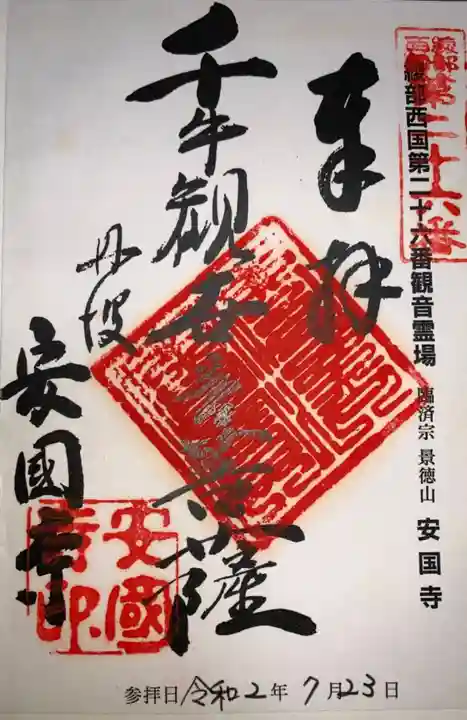 綾部西国第二十六番観音霊場 臨済宗 景徳山 安国寺
綾部西国
第二十六番
奉拝
千手観世音菩薩
丹波
安國寺
安國寺印
参拝日 令和2年 7月23日